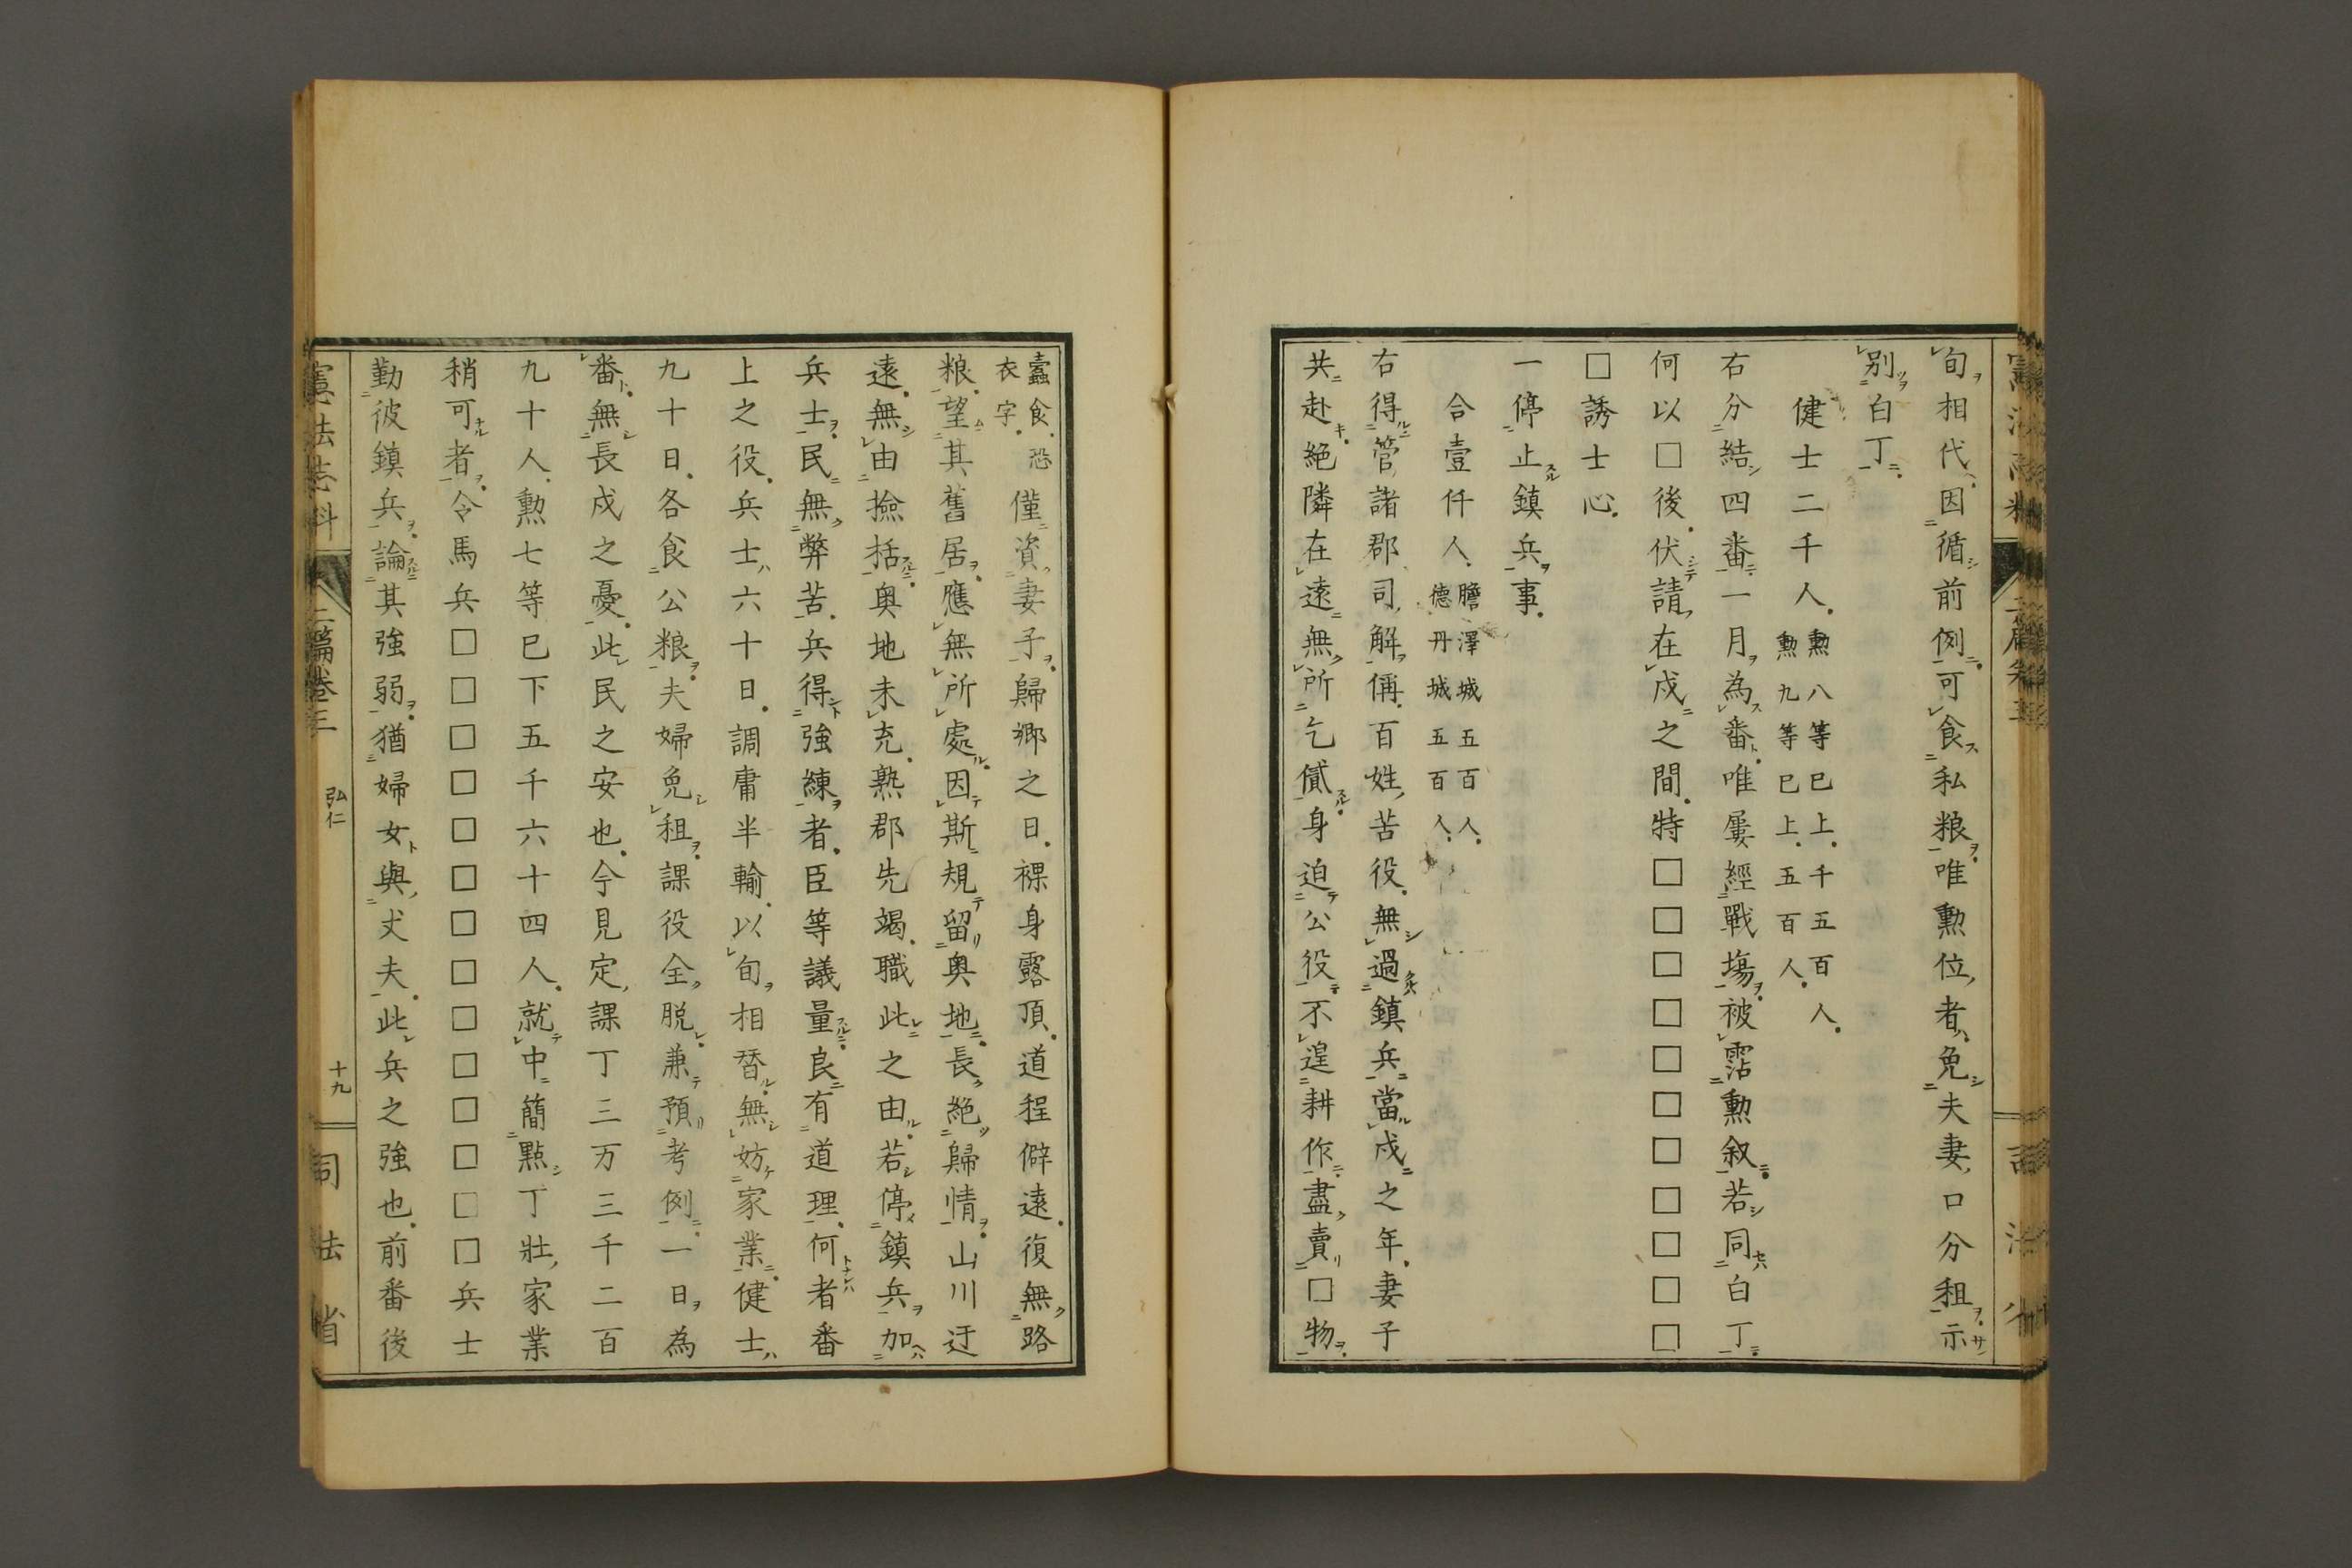 旬相代因循前例可食私粮唯勲位者免夫妻口分租示
別白丁
健士二千人勲八等已上千五百人
勲九等已上五百人
右分結四番一月為番唯屢經戰塲被霑勲叙若同白丁
何以□後伏請在戍之間特□□□□□□□□□□□
□誘士心
一停止鎮兵事
合壹仟人膽澤城五百人
德丹城五百人
右得管諸郡司解偁百姓苦役無過鎮兵當戍之年妻子
共赴絕隣在遠無所乞儥身迫公役不遑耕作盡賣□物
蠧食恐
衣字
僅資妻子歸鄉之日裸身露頂道程僻遠復無路
粮望其舊居應無所處因斯規留奥地長絕歸情山川迂
遠無由撿括奥地未充熟郡先竭職此之由若停鎮兵加
兵士民無弊苦兵得強練者臣等議量良有道理何者番
上之役兵士六十日調庸半輸以旬相替無妨家業健士
九十日各食公粮夫婦免租課役全脱兼預考例一日為
番無長戍之憂此民之安也今見定課丁三万三千二百
九十人勲七等已下五千六十四人就中簡點丁壯家業
稍可者令馬兵□□□□□□□□□□□□□□兵士
勤彼鎮兵論其強弱猶婦女與丈夫此兵之強也前番後
憲法志料
二篇卷三
弘仁
十九
司法省